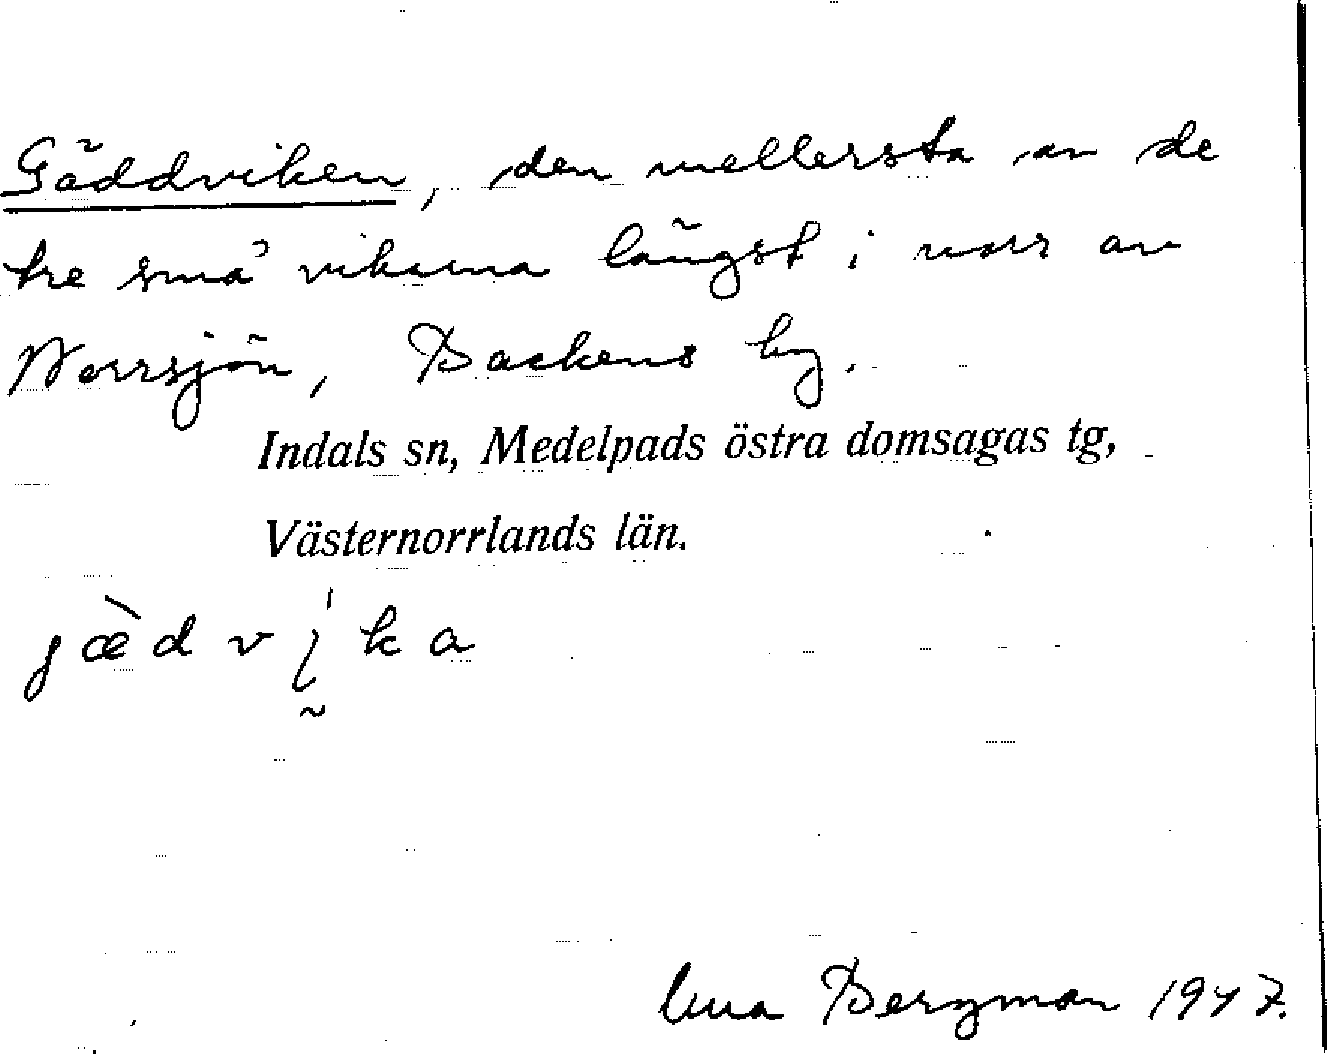 Gäddviken, den mellersta av de
tre små vikarna längst i norr av
Norrsjön, Backens by.
Indals sn, Medelpads östra domsagas tg,
Västernorrlands län.
Bergman 1947.